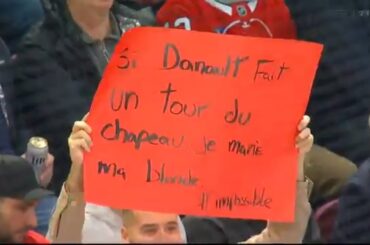 Si Danault Fait
un tour du
chapeau je marie
ma blonde.
#impossible